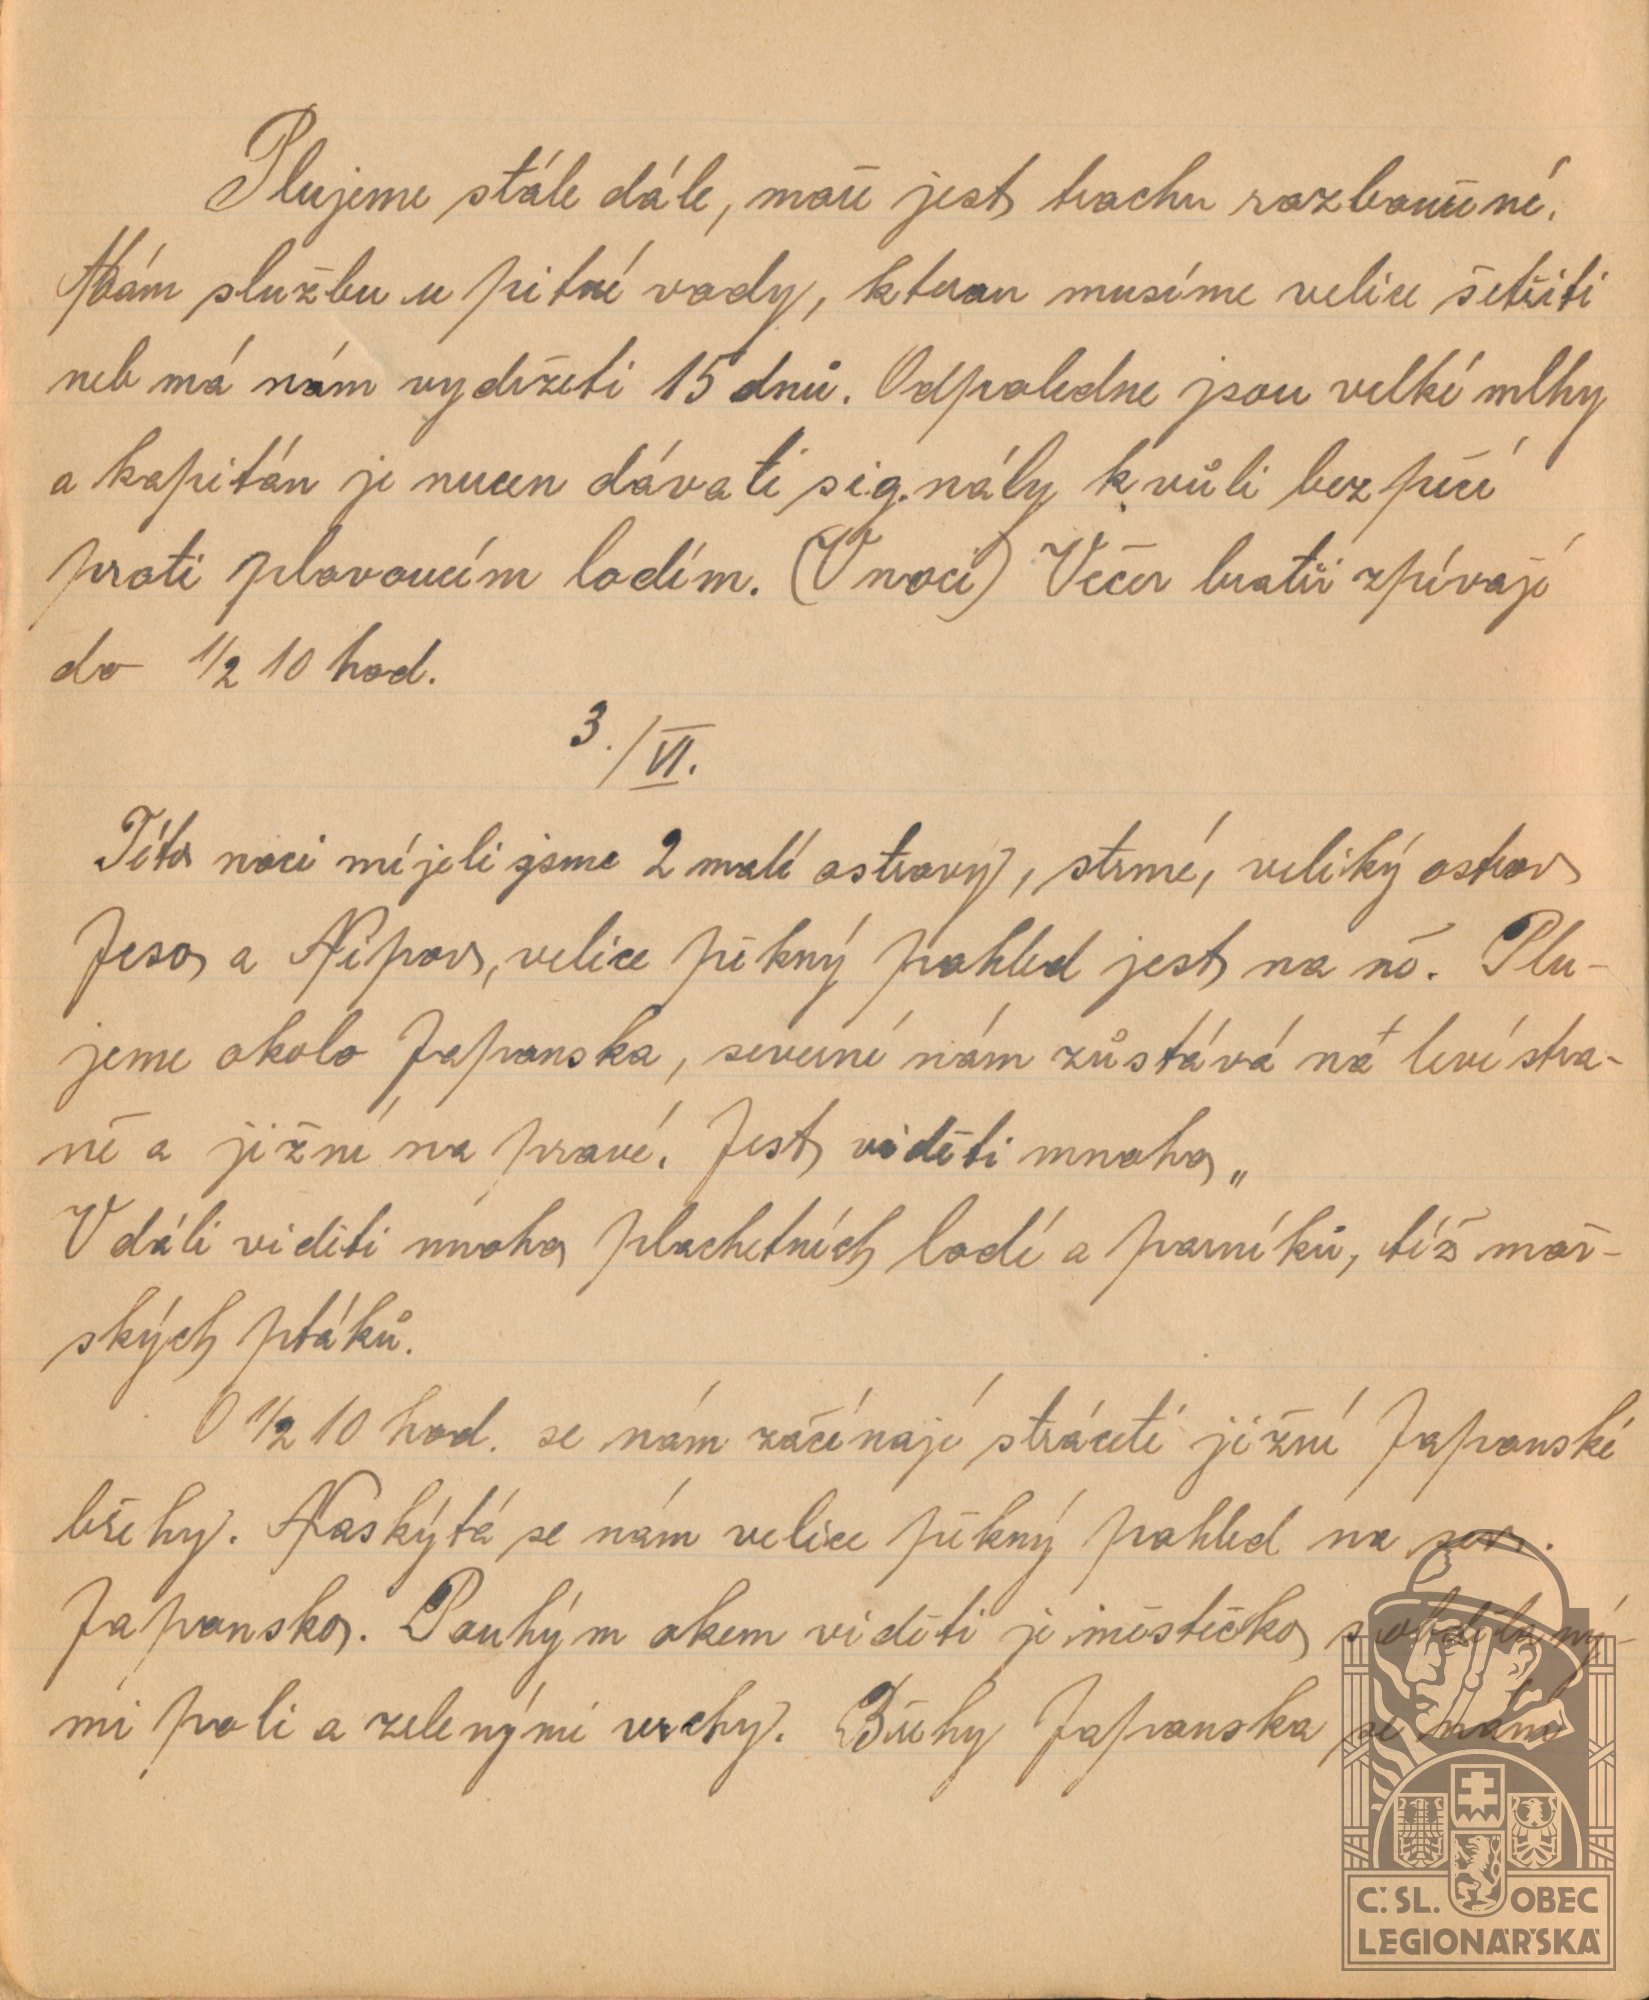 Plujeme stále dále, moře jest trochu rozbouřené.
Mám službu u pitné vody, kterou musíme velice šetřiti
neb má nám vydržeti 15 dnů. Odpoledne jsou velké mlhy
a kapitán je nucen dávati signály kvůli bezpečí
proti plovoucím lodím. (V noci) Večer bratři zpívají
do 1/2 10 hod.
3./VI.
Této noci míjeli jsme 2 malé ostrovy, strmé, veliký ostrov
Jeso a Nipon, velice pěkný pohled jest na ně. Plu-
jeme okolo Japonska, severné nám zůstává na levé stra-
ně a jižné na pravé. Jest viděti mnoho „
V dáli viděti mnoho plachetních lodí a parníků, též moř-
ských ptáků.
O 1/2 10 hod. se nám začínají stráceti jižní Japonské
břehy. Naskýtá se nám velice pěkný pohled na sev.
Japonsko. Pouhým okem viděti je městečko s obdělaný-
mi poli a zelenými vrchy. Břehy Japonska se nám
Č. SL. OBEC
LEGIONÁŘSKÁ